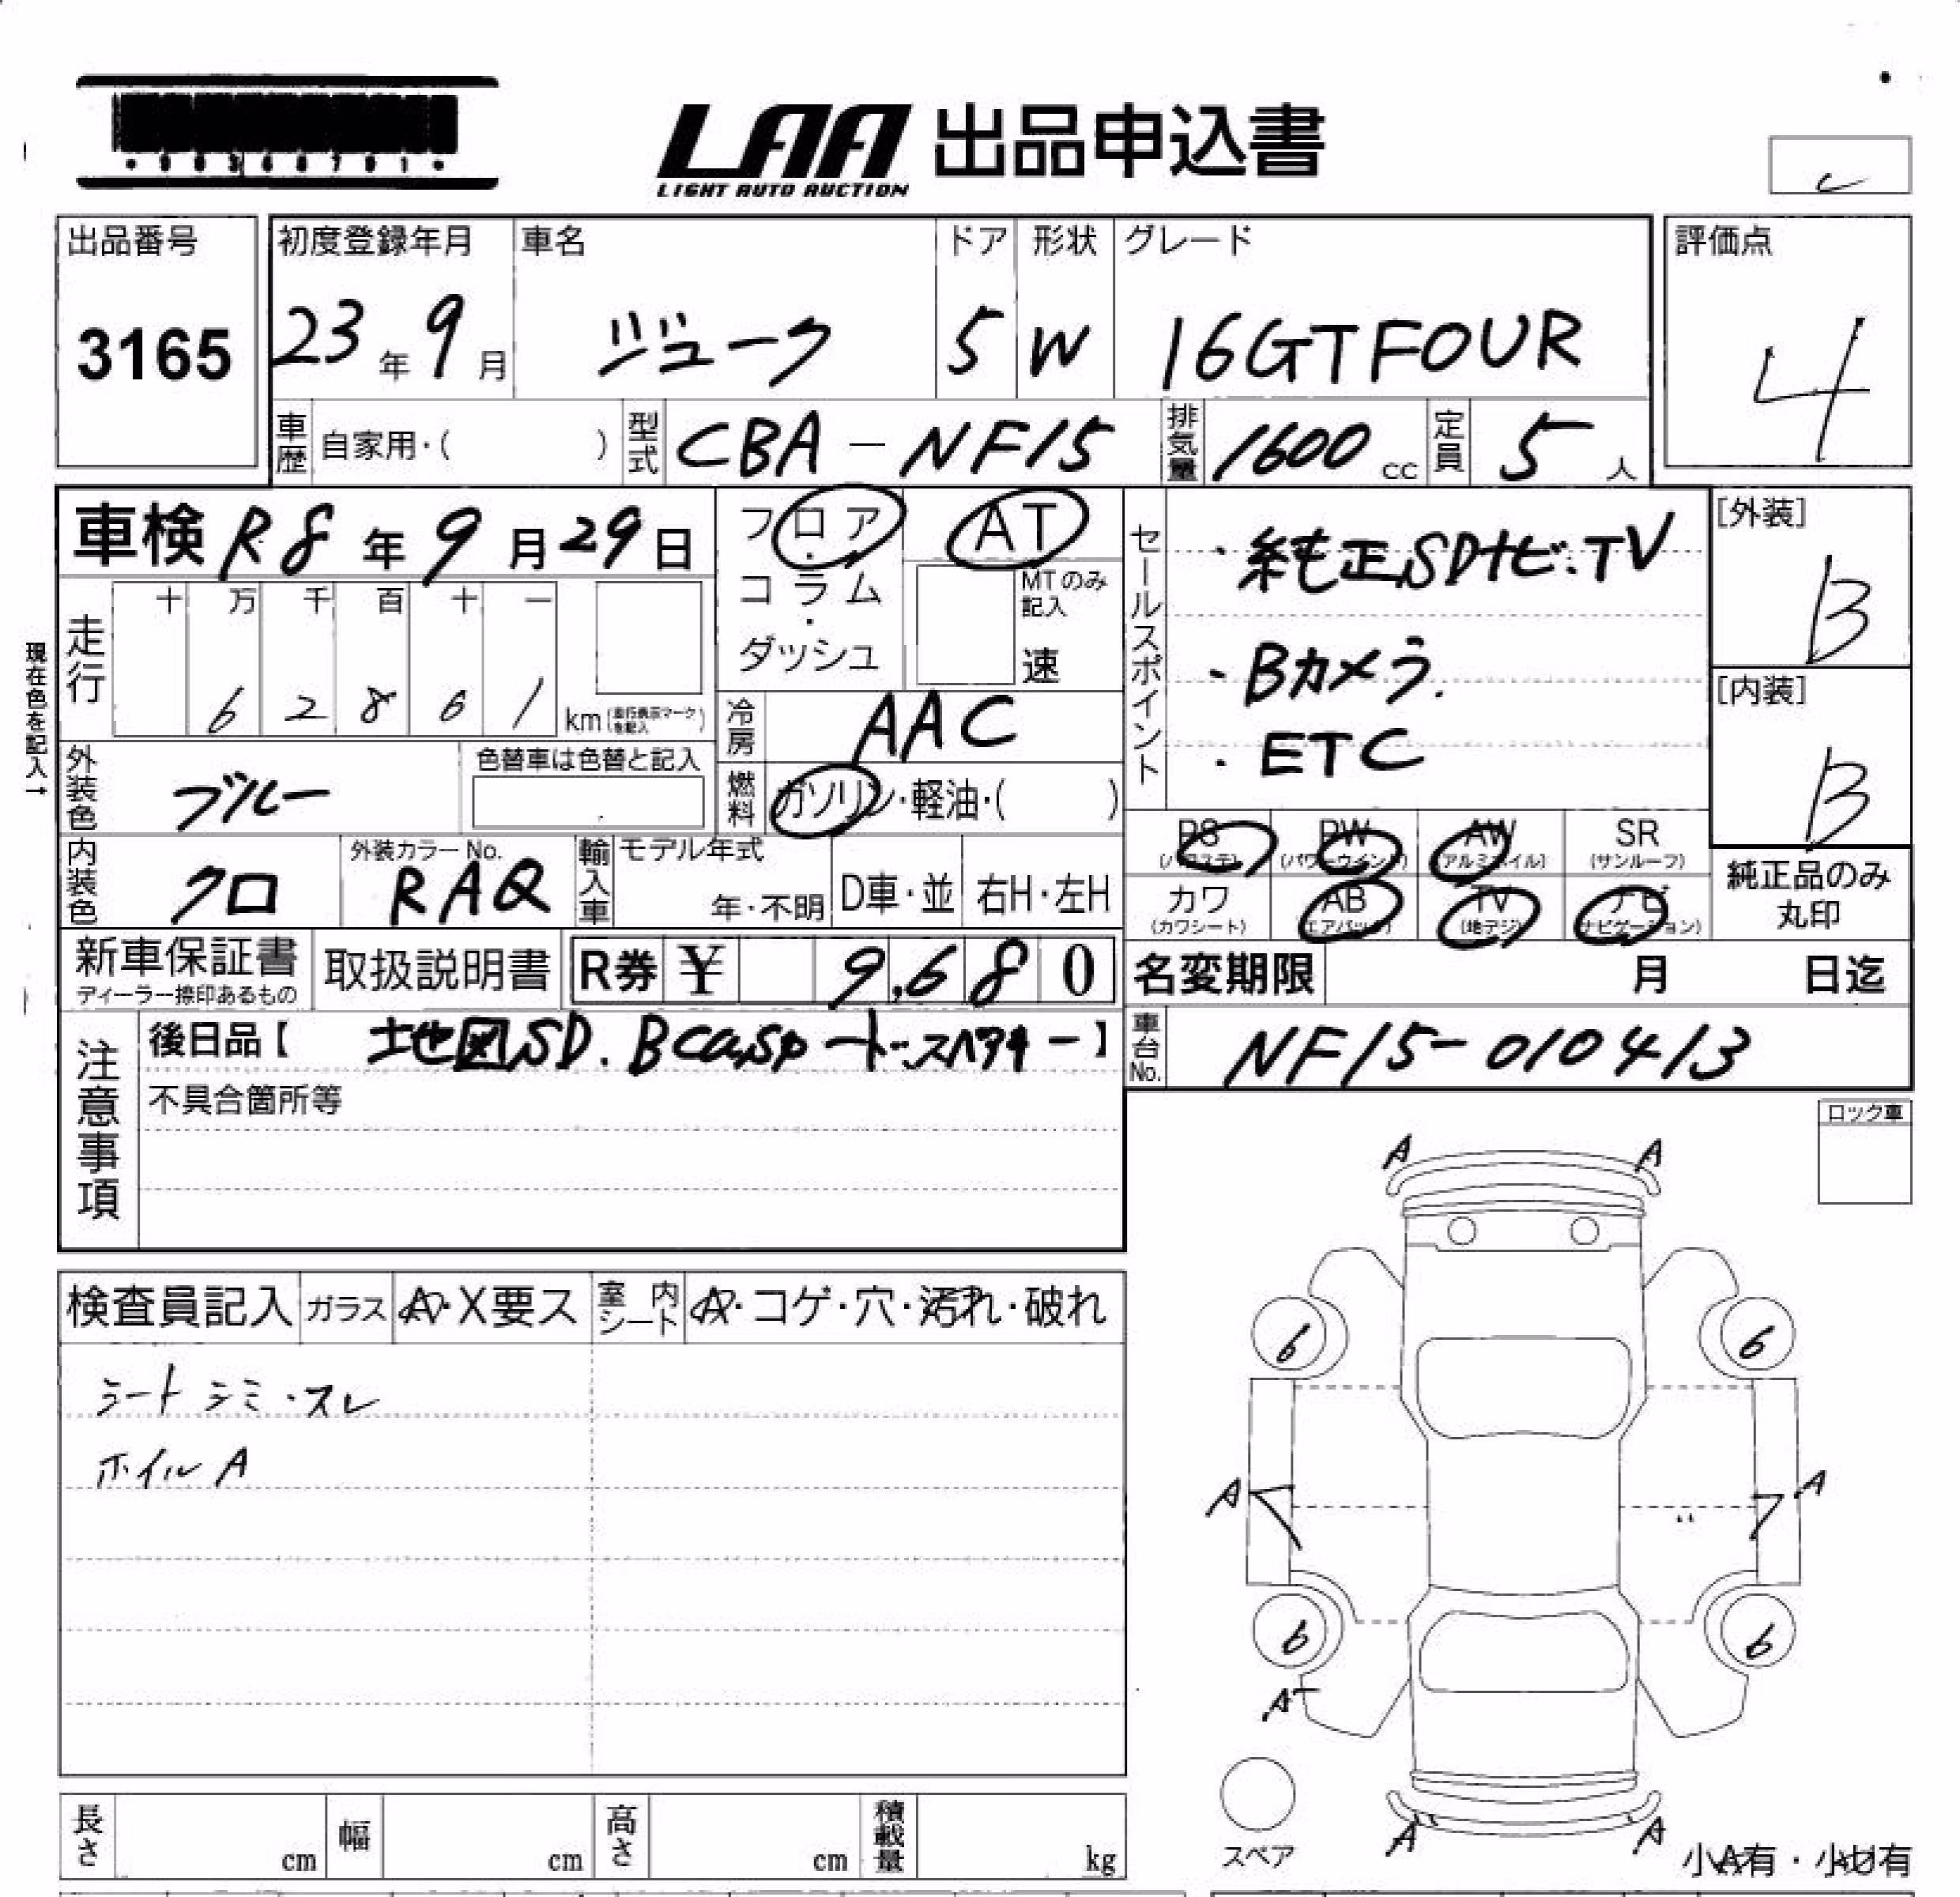 LAA 出品申込書
LIGHT AUTO AUCTION
出品番号
3165
初度登録年月 車名 ドア 形状 グレード
23年9月 ジューク 5 W 16GTFOUR
評価点
4
車歴 自家用・( ) 型式 CBA-NF15 排気量 1600cc 定員 5人
車検 R8年9月29日
フロア・コラム・ダッシュ
AT
MTのみ記入
速
セールスポイント
・純正SDナビ:TV
・Bカメラ.
・ETC
[外装]
B
[内装]
B
現在色を記入→
走行 十 万 千 百 十 一
6 2 8 6 1 km
冷房 AAC
外装色 ブルー 色替車は色替と記入
燃料 ガソリン・軽油・( )
内装色 クロ 外装カラーNo. RAQ
輸入車 モデル年式 年・不明 D車・並 右H・左H
PS (パワステ) PW (パワーウインド) AW (アルミホイル) SR (サンルーフ)
カワ (カワシート) AB (エアバック) TV (地デジ) ナビ (ナビゲーション)
純正品のみ丸印
新車保証書 ディーラー捺印あるもの 取扱説明書 R券 ¥ 9,680
名変期限 月 日迄
注意事項
後日品【 地図SD.Bcasカード.スペアキー】
不具合箇所等
車台No. NF15-010413
ロック車
検査員記入 ガラス A・X要ス 室内シート A・コゲ・穴・汚れ・破れ
シート シミ・スレ
ホイルA
A A
6 6
A A
6 6
A
スペア
A A
小A有・小U有
長さ cm 幅 cm 高さ cm 積載量 kg